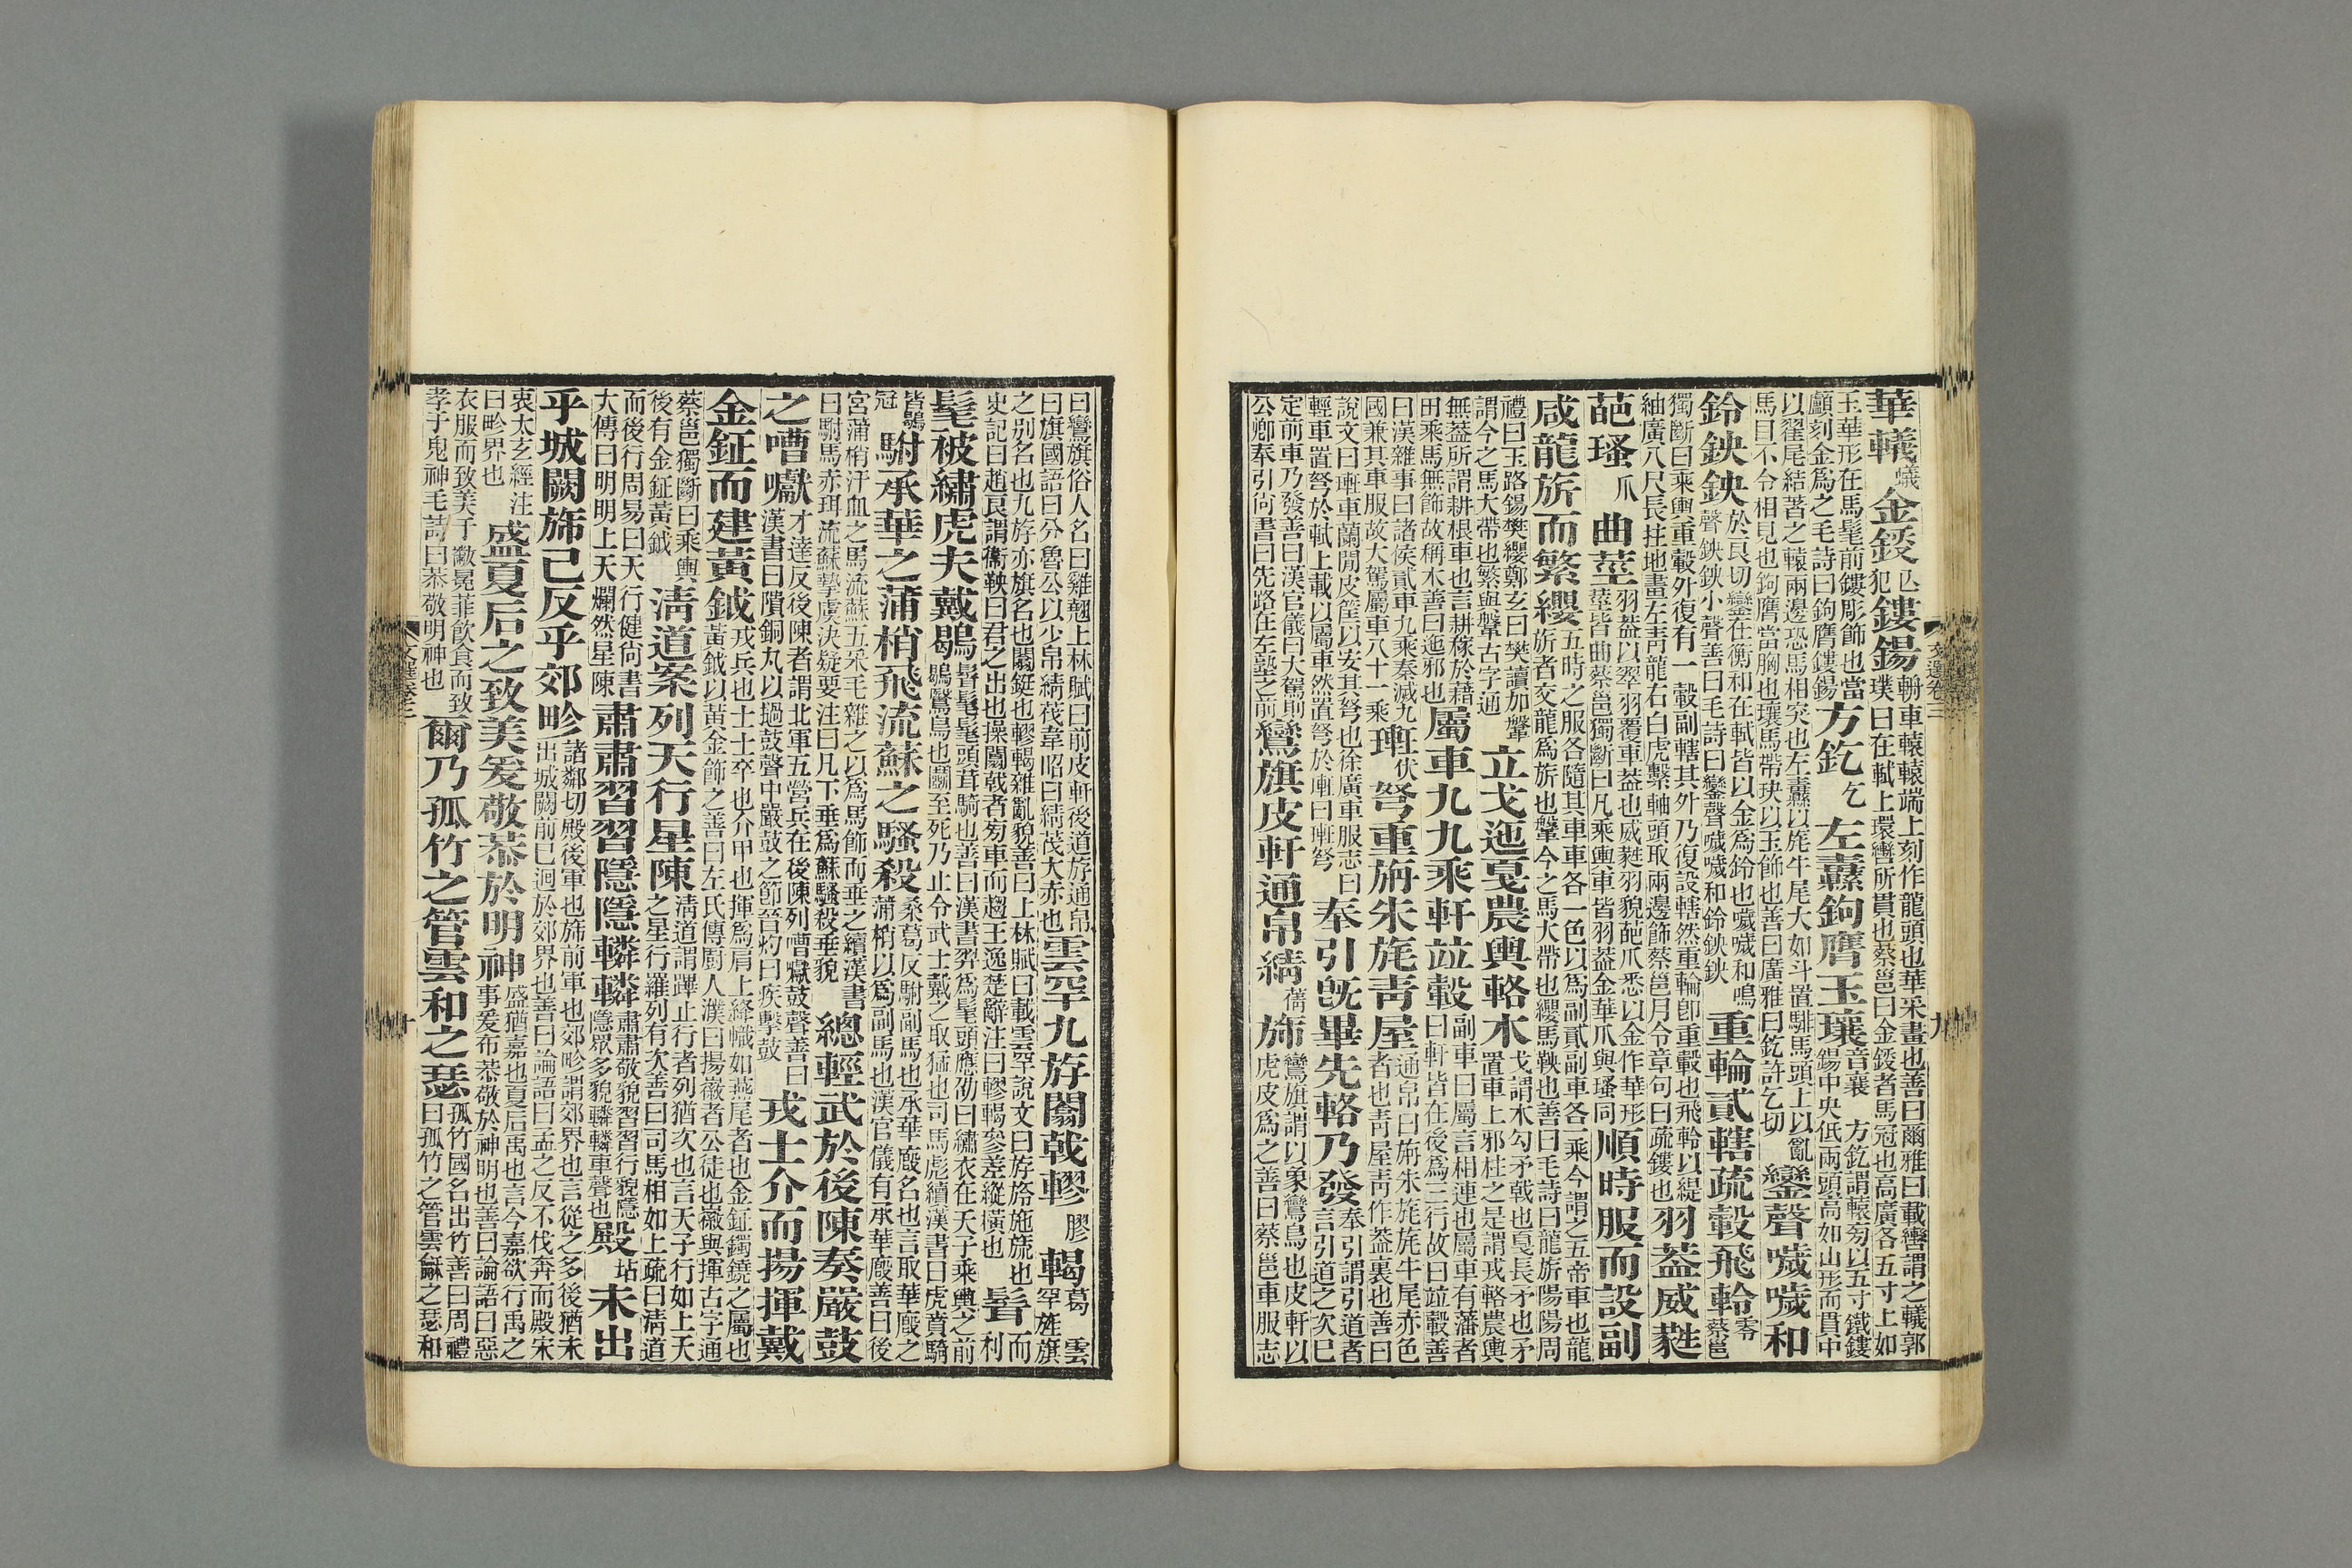 華轙蟻金鋄亡犯鏤鍚車轅轅端上刻作龍頭也華采畫也善曰爾雅曰載轡謂之轙郭璞曰在軾上環轡所貫也蔡邕曰金鋄者馬冠也高廣各五寸上如
玉華形在馬髦前鏤彫飾也當顱刻金爲之毛詩曰鉤膺鏤鍚方釳乞左纛鉤膺玉瓖音襄方釳謂轅旁以五寸鐵鏤鍚中央低兩頭高如山形而貫中
以翟尾結著之轅兩邊恐馬相突也左纛以旄牛尾大如斗置騑馬頭上以亂馬目不令相見也鉤膺當胸也瓖馬帶玦以玉飾也善曰廣雅曰釳許乞切鑾聲噦噦和
鈴鉠鉠於良切鑾在衡和在軾皆以金爲鈴也噦噦和鳴聲鉠鉠小聲善曰毛詩曰鑾聲噦噦和鈴鉠鉠重輪貳轄疏轂飛軨零蔡邕
獨斷曰乘輿重轂外復有一轂副轄其外乃復設轄然重輪卽重轂也飛軨以緹紬廣八尺長拄地畫左靑龍右白虎繫軸頭取兩邊飾蔡邕月令章句曰疏鏤也羽葢威蕤
葩瑵爪曲莖羽葢以翠羽覆車葢也威蕤羽貌葩爪悉以金作華形莖皆曲蔡邕獨斷曰凡乘輿車皆羽葢金華爪與瑵同順時服而設副
咸龍旂而繁纓五時之服各隨其車車各一色以爲副貳副車各一乘今謂之五帝車也龍旂者交龍爲旂也鞶今之馬大帶也纓馬鞅也善曰毛詩曰龍旂陽陽周
禮曰玉路鍚樊纓鄭玄曰樊讀加鞶謂今之馬大帶也繁與鞶古字通立戈迤戛農輿輅木戈謂木勾矛戟也戛長矛也矛置車上邪柱之是謂戎輅農輿
無葢所謂耕根車也言耕稼於藉田乘馬無飾故稱木善曰迤邪也屬車九九乘軒竝轂副車曰屬言相連也屬車有藩者曰軒皆在後爲三行故曰竝轂善
曰漢雜事曰諸侯貳車九乘秦滅九國兼其車服故大駕屬車八十一乘䡖伏弩重旃朱旄靑屋通帛曰旃朱旄旄牛尾赤色者也靑屋靑作葢裏也善曰
說文曰䡖車蘭閒皮筐以安其弩也徐廣車服志曰輕車置弩於軾上載以屬車然置弩於䡖曰䡖弩奉引旣畢先輅乃發奉引謂引道者言引道之次已
定前車乃發善曰漢官儀曰大駕則公卿奉引尙書曰先路在左塾之前鸞旗皮軒通帛綪蒨斾鸞旗謂以象鸞鳥也皮軒以虎皮爲之善曰蔡邕車服志
文選卷三
九
曰鸞旗俗人名曰雞翹上林賦曰前皮軒後道斿通帛曰旗國語曰分魯公以少帛綪茷韋昭曰綪茂大赤也雲罕九斿闟戟轇膠輵葛雲罕旌旗
之別名也九斿亦旗名也闟鋋也轇輵雜亂貌善曰上林賦曰載雲罕說文曰斿旍施旒也而史記曰趙良謂衞鞅曰君之出也操闟戟者旁車而趨王逸楚辭注曰轇輵參差縱橫也髶而利
髦被繡虎夫戴鶡髶髦髦頭茸騎也善曰漢書羿爲髦頭應劭曰繡衣在天子乘輿之前鶡鷖鳥也鬭至死乃止令武士戴之取猛也司馬彪續漢書曰虎賁騎
皆鶡冠駙承華之蒲梢飛流蘇之騷殺桑葛反駙副馬也承華廏名也言取華廏之蒲梢以爲副馬也漢官儀有承華廏善曰後
宮蒲梢汗血之馬流蘇五采毛雜之以爲馬飾而垂之續漢書曰駙馬赤珥流蘇摯虞決疑要注曰凡下垂爲蘇騷殺垂貌總輕武於後陳奏嚴鼓
之嘈囐才達反後陳者謂北軍五營兵在後陳列嘈囐鼓聲善曰漢書曰隤銅丸以撾鼓聲中嚴鼓之節晉灼曰疾擊鼓戎士介而揚揮戴
金鉦而建黃鉞戎兵也士士卒也介甲也揮爲肩上絳幟如燕尾者也金鉦鐲鐃之屬也黃鉞以黃金飾之善曰左氏傳廚人濮曰揚徽者公徒也徽與揮古字通
蔡邕獨斷曰乘輿後有金鉦黃鉞淸道案列天行星陳淸道謂蹕止行者列猶次也言天子行如上天之星行羅列有次善曰司馬相如上疏曰淸道
而後行周易曰天行健尙書大傳曰明明上天爛然星陳肅肅習習隱隱轔轔肅肅敬貌習習行貌隱隱眾多貌轔轔車聲也殿坫未出
乎城闕斾已反乎郊畛諸鄰切殿後軍也斾前軍也郊畛謂郊界也言從之多後猶未出城闕前已迴於郊界也善曰論語曰孟之反不伐奔而殿宋
衷太玄經注曰畛界也盛夏后之致美爰敬恭於明神盛猶嘉也夏后禹也言今嘉欲行禹之事爰布恭敬於神明也善曰論語曰惡
衣服而致美于黻冕菲飮食而致孝于鬼神毛詩曰恭敬明神也爾乃孤竹之管雲和之瑟孤竹國名出竹善曰周禮曰孤竹之管雲龢之瑟和
十